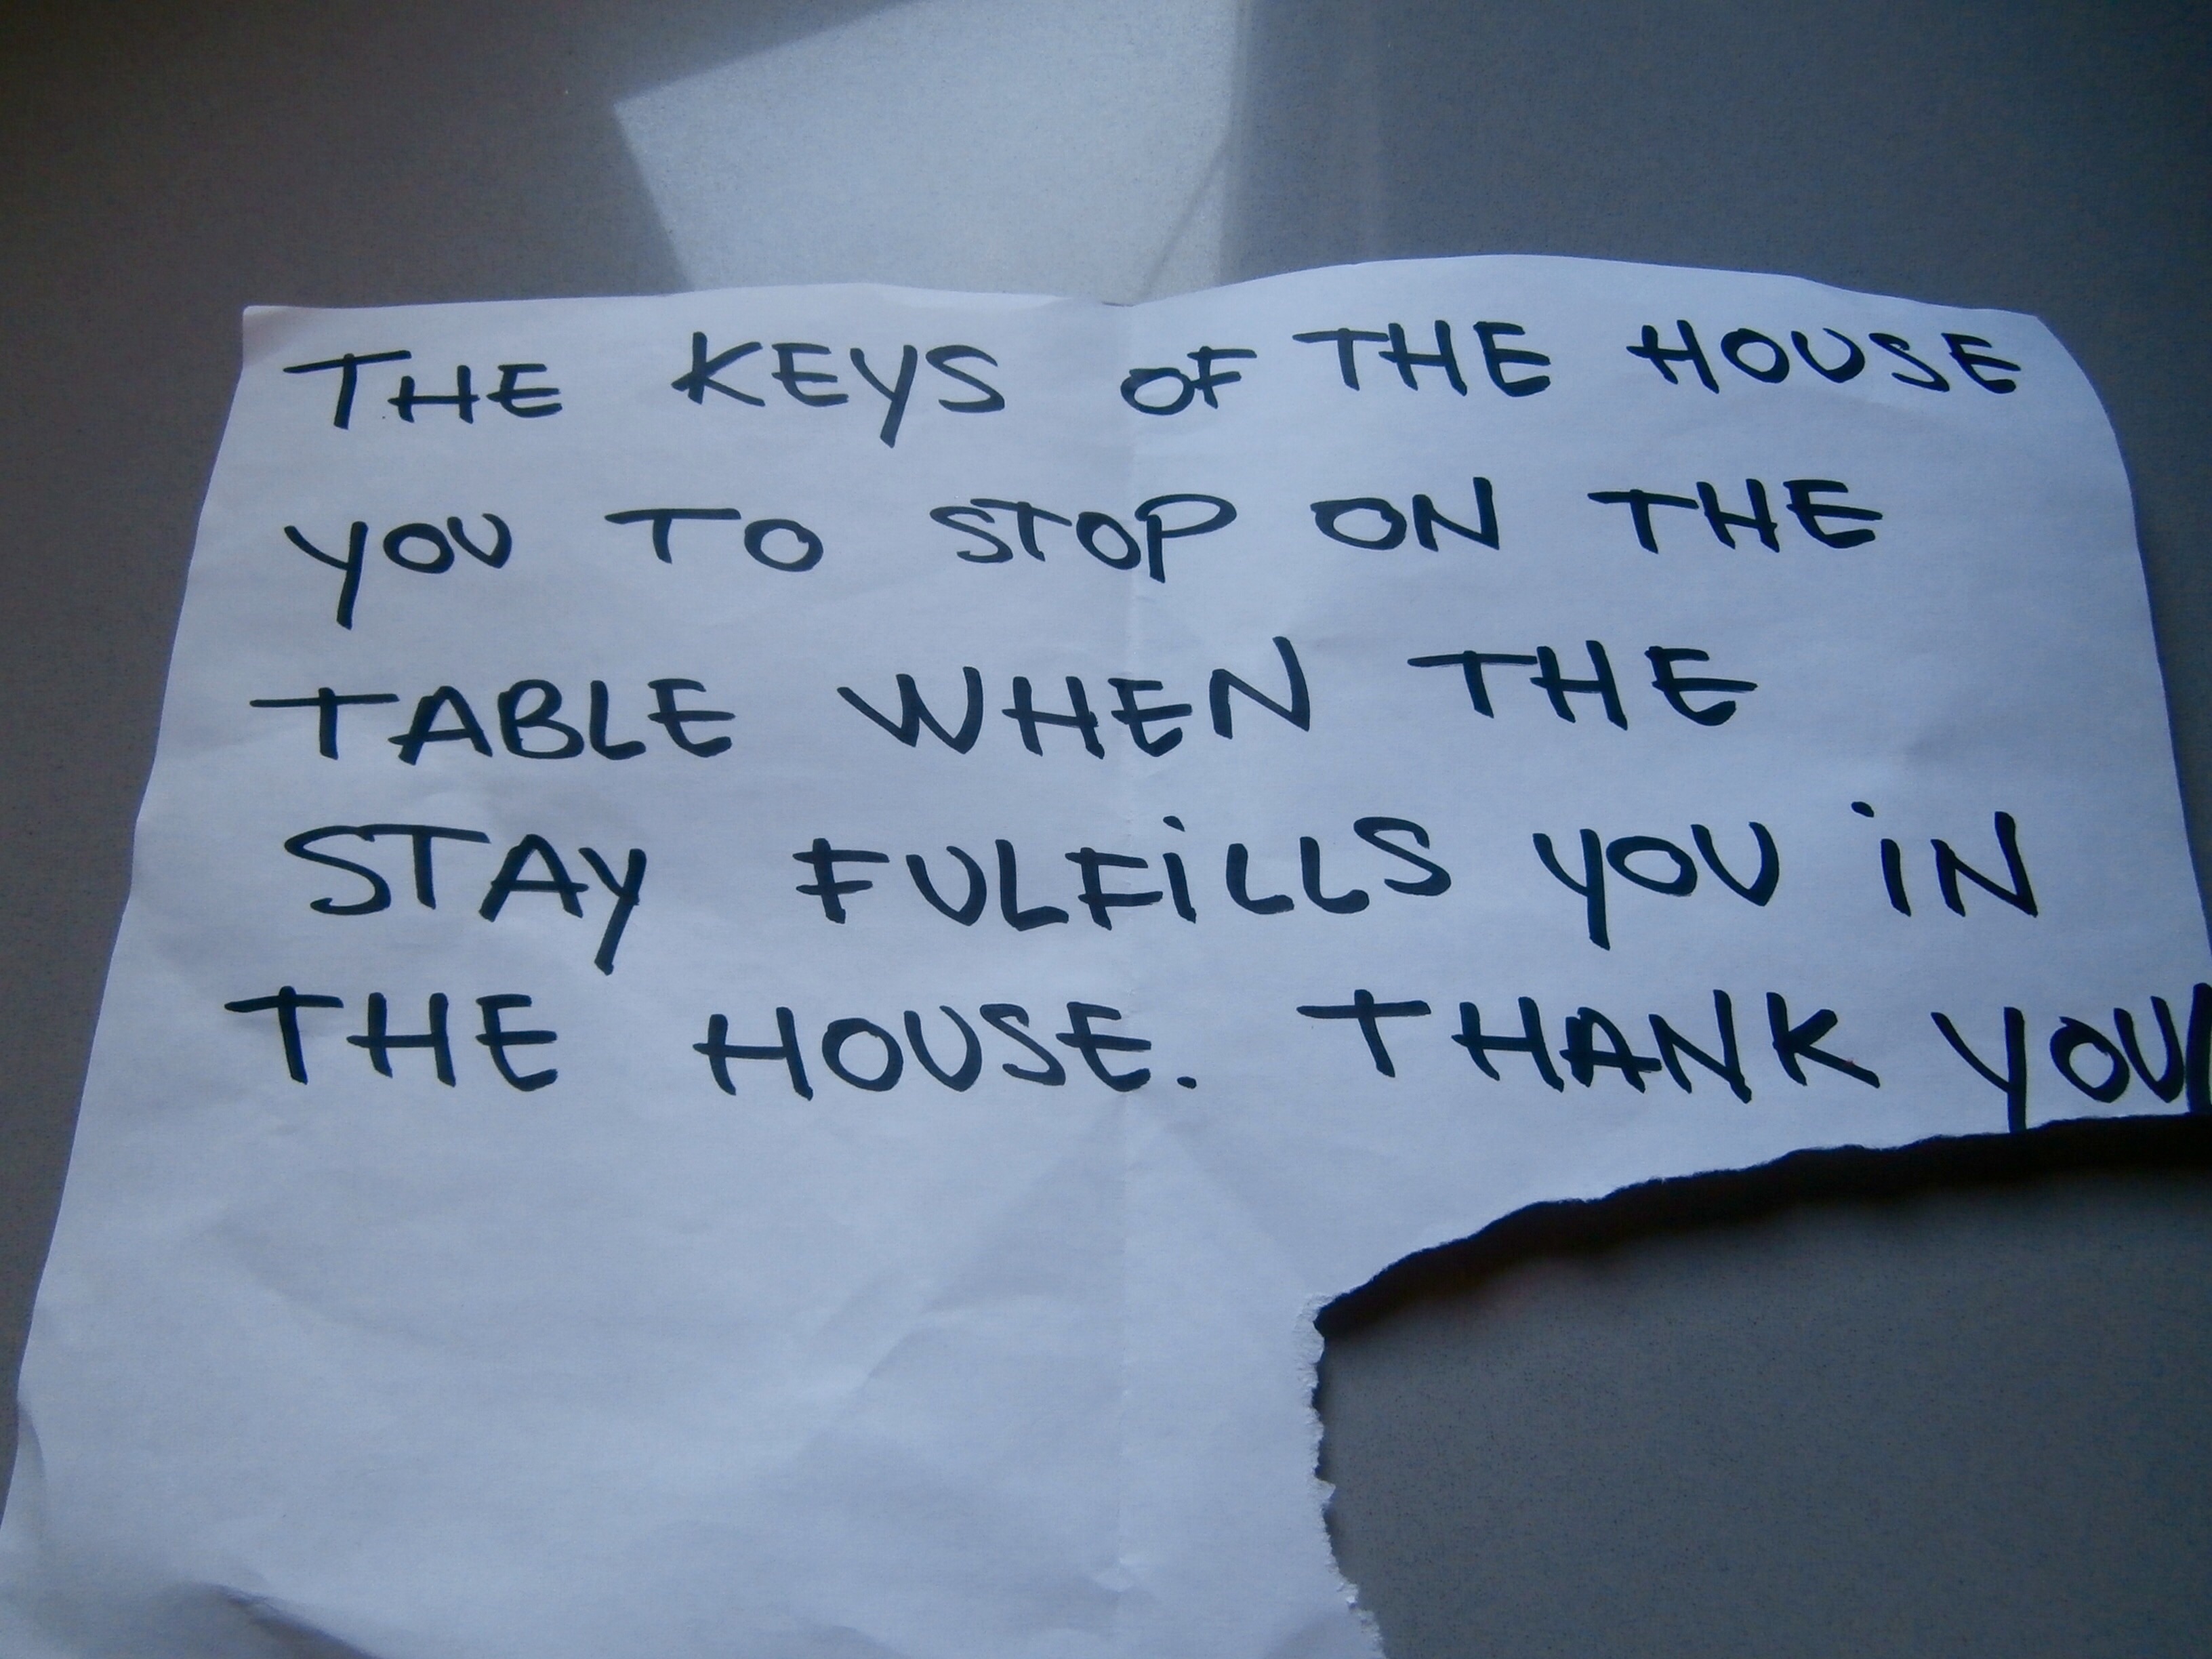 THE KEYS OF THE HOUSE
YOU TO STOP ON THE
TABLE WHEN THE
STAY FULFiLLS YOU iN
THE HOUSE. THANK YOU